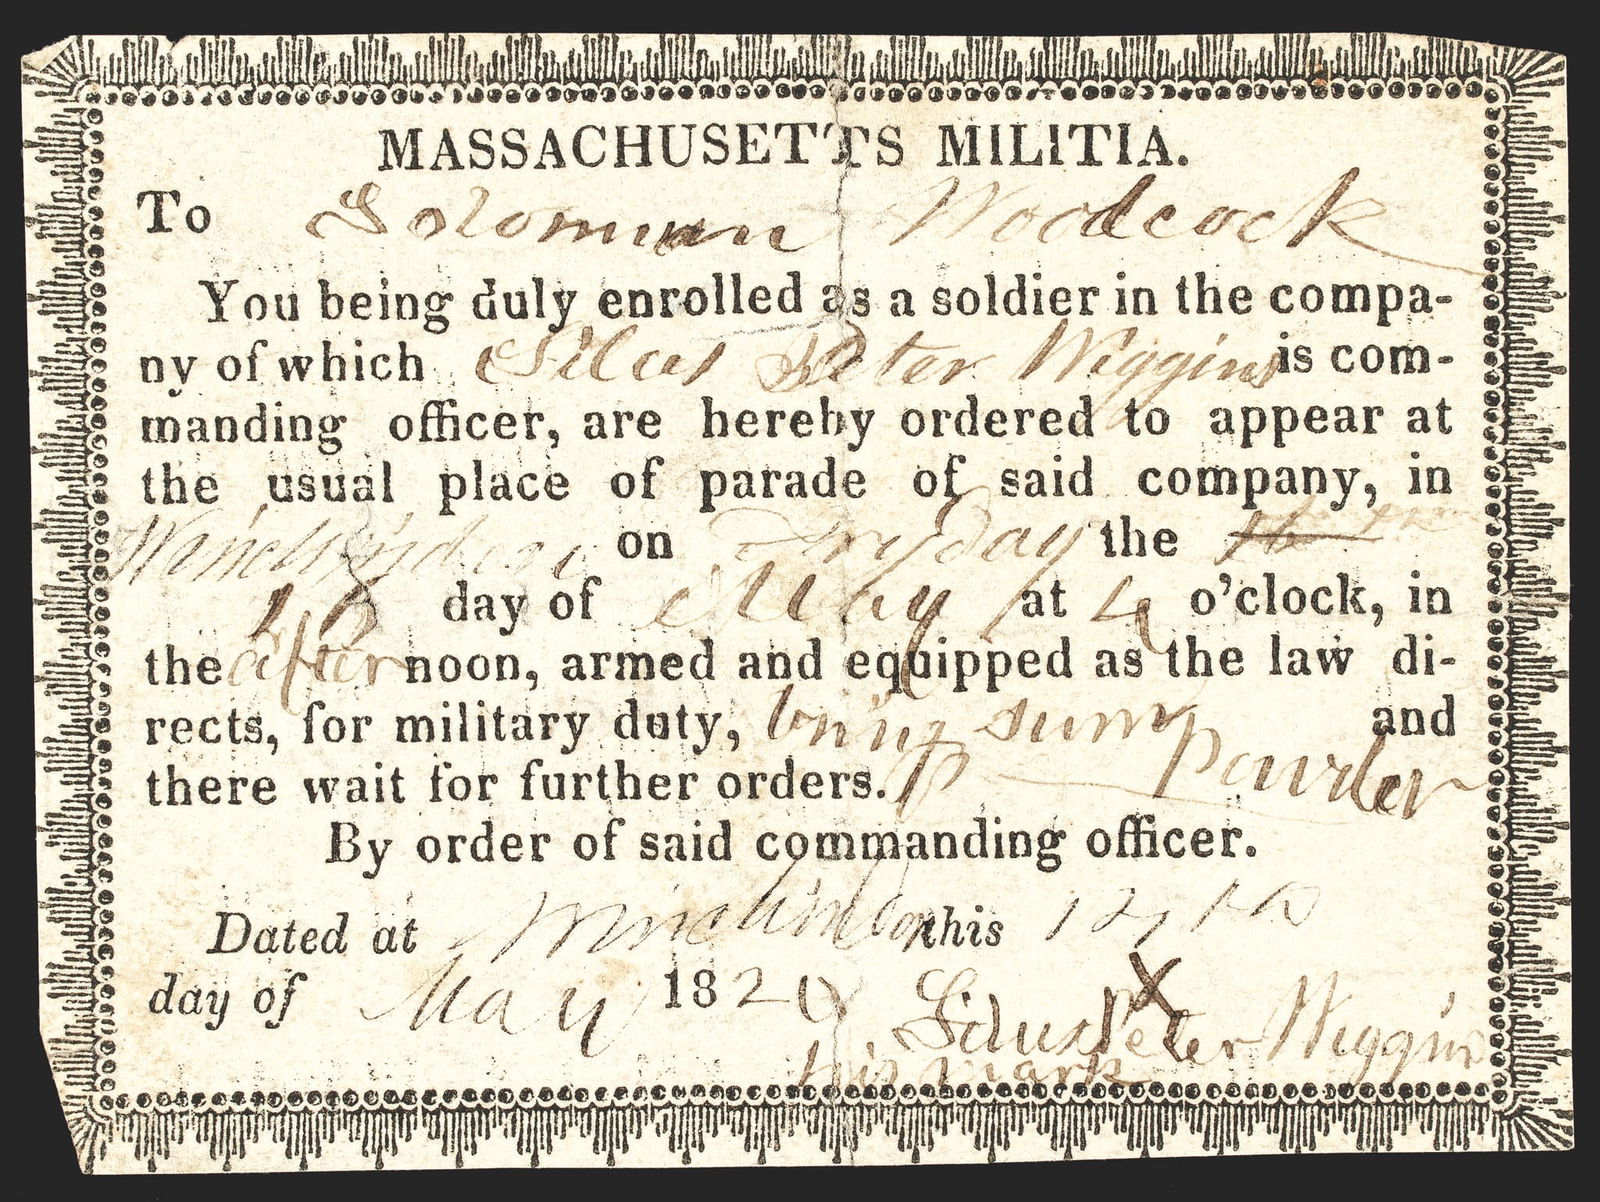 MASSACHUSETTS MILITIA.
To Solomun Woodcock
You being duly enrolled as a soldier in the compa-
ny of which Silas Peter Wiggins is com-
manding officer, are hereby ordered to appear at
the usual place of parade of said company, in
Winchindon on Fryday the 16
18 day of May at 4 o'clock, in
the after noon, armed and equipped as the law di-
rects, for military duty, bring sum and
there wait for further orders. powder
By order of said commanding officer.
Dated at this
day of May 182 X
Peter Wiggins
his mark